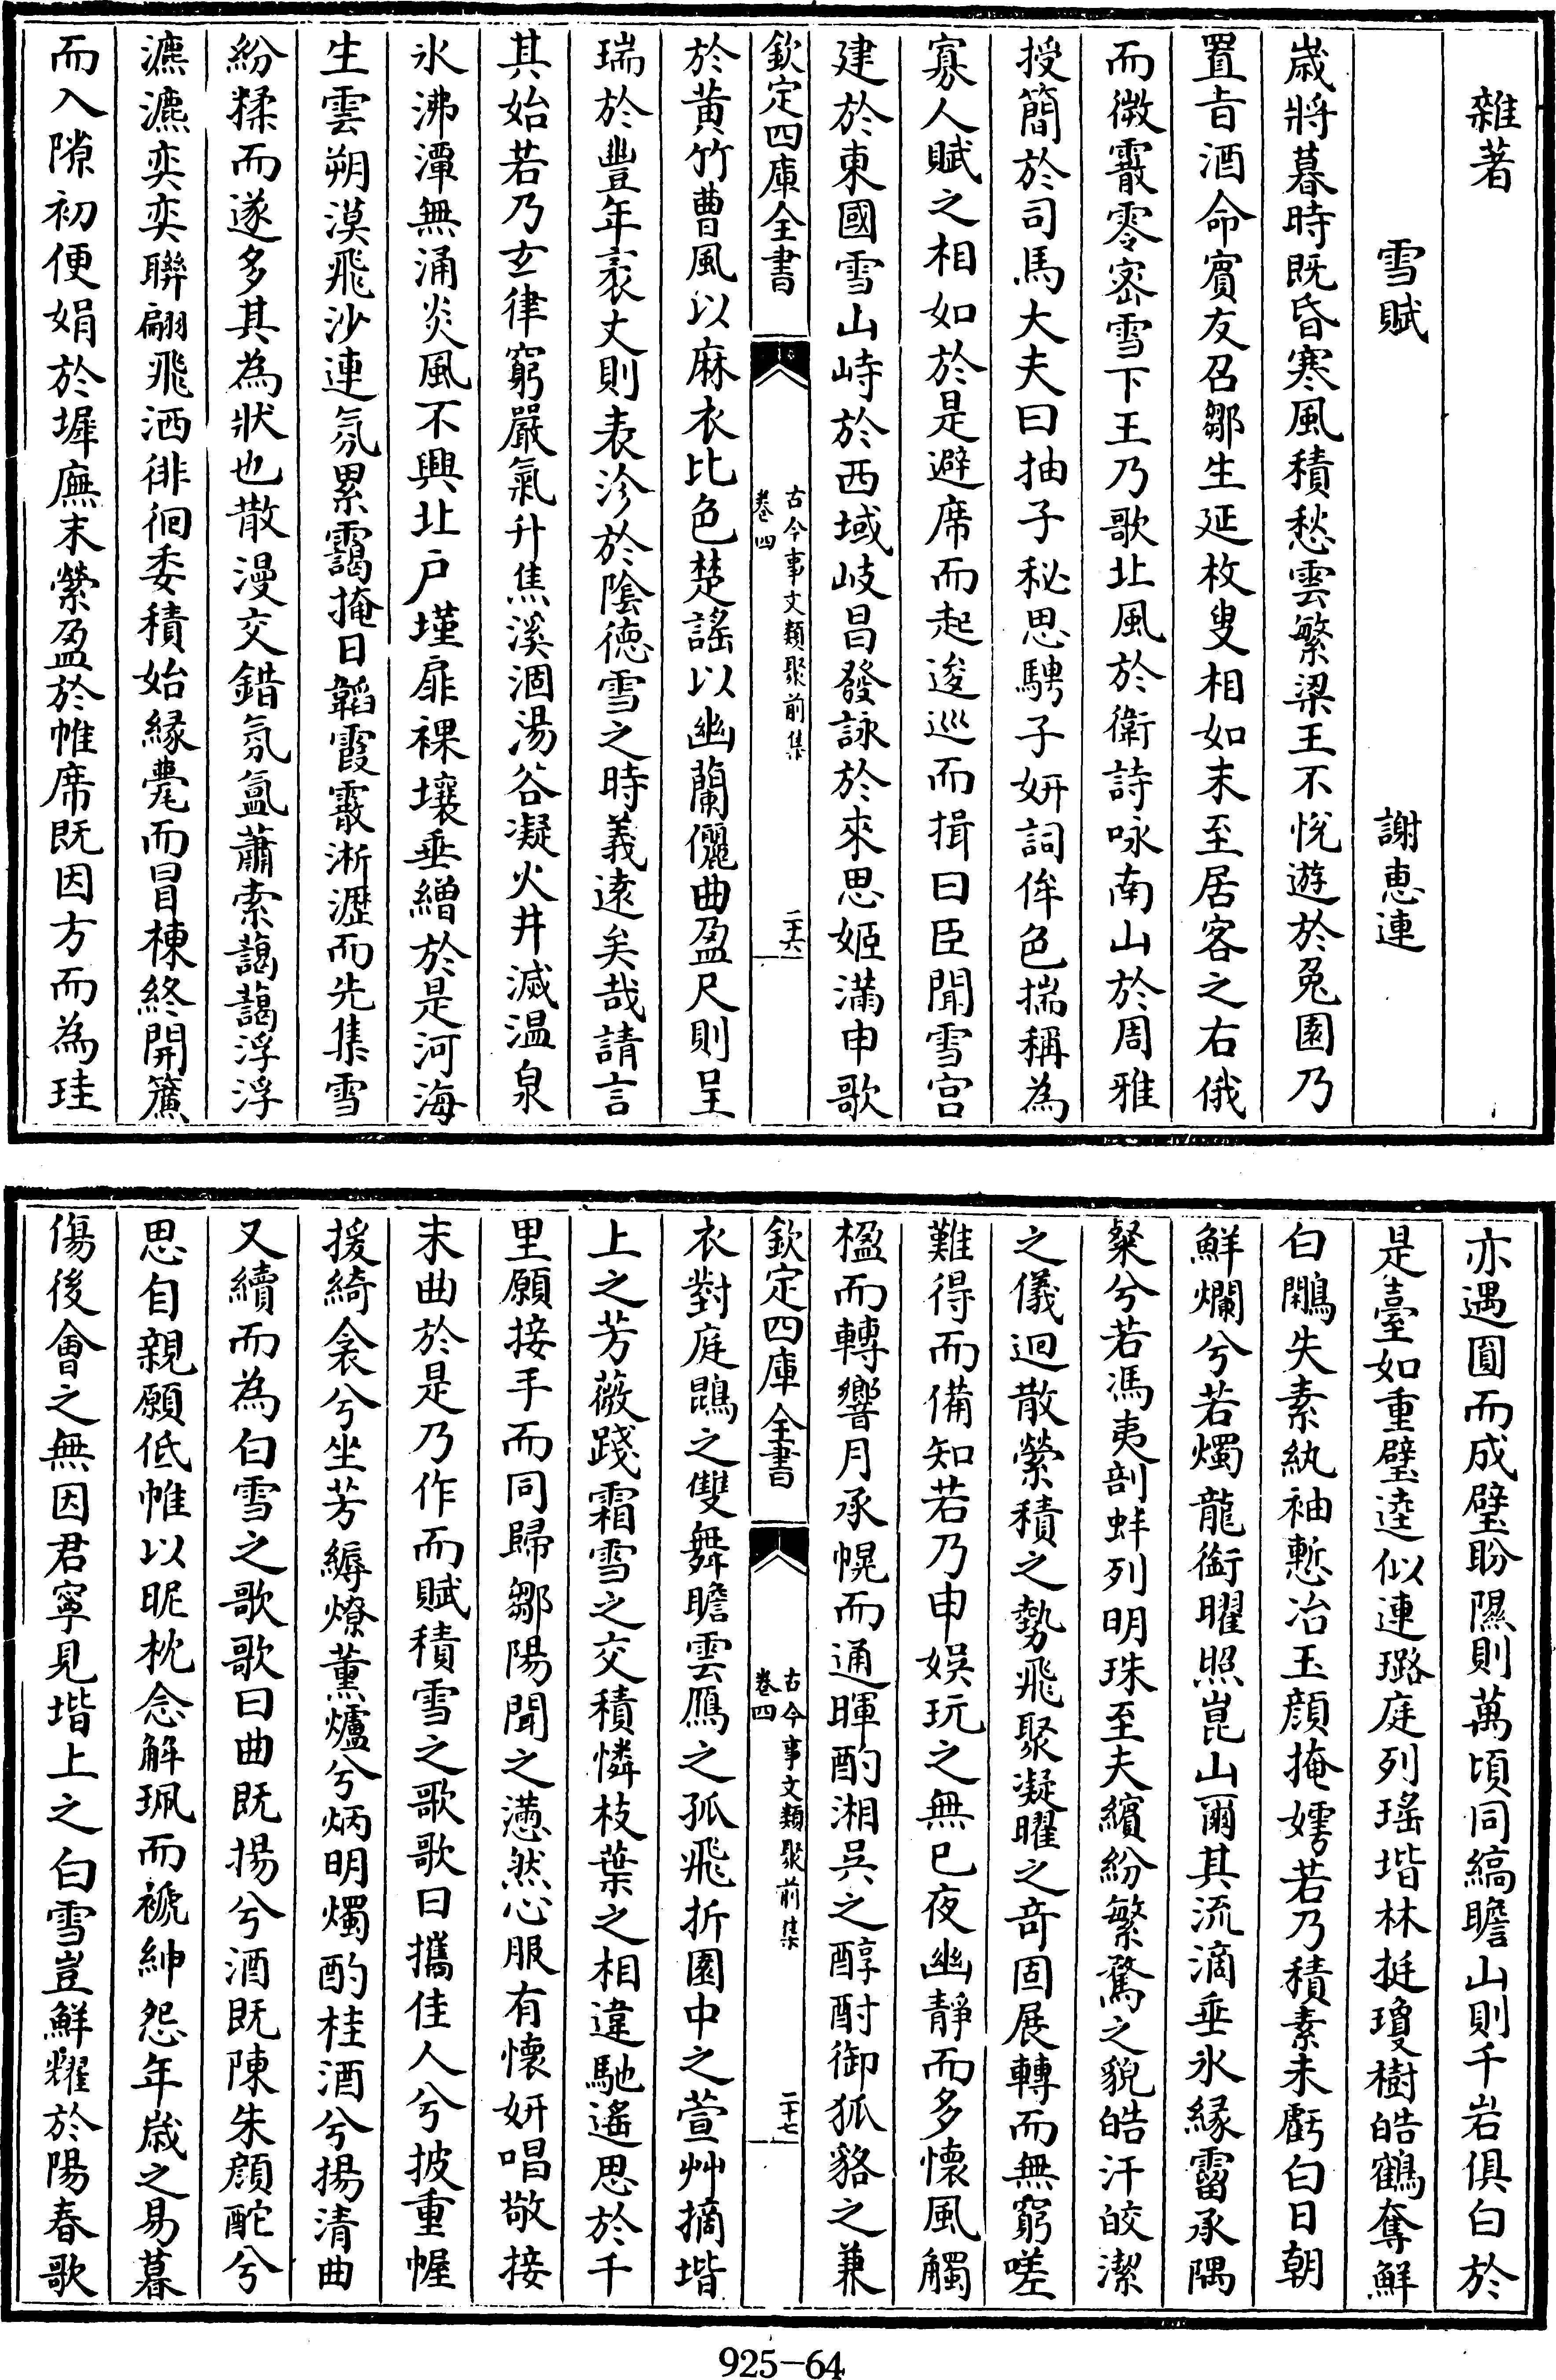 雜著
雪賦 謝惠連
歲將暮時既昏寒風積愁雲繁梁王不悅遊於兔園乃
置旨酒命賓友召鄒生延枚叟相如末至居客之右俄
而微霰零密雪下王乃歌北風於衛詩咏南山於周雅
授簡於司馬大夫曰抽子秘思騁子妍詞侔色揣稱為
寡人賦之相如於是避席而起逡巡而揖曰臣聞雪宮
建於東國雪山峙於西域岐昌發詠於來思姬滿申歌
欽定四庫全書 古今事文類聚前集 卷四 二十六
於黃竹曹風以麻衣比色楚謠以幽蘭儷曲盈尺則呈
瑞於豐年袤丈則表沴於陰德雪之時義遠矣哉請言
其始若乃玄律窮嚴氣升焦溪涸湯谷凝火井滅溫泉
氷沸潭無涌炎風不興北户墐扉裸壤垂繒於是河海
生雲朔漠飛沙連氛累靄掩日韜霞霰淅瀝而先集雪
紛糅而遂多其為狀也散漫交錯氛氲蕭索藹藹浮浮
瀌瀌奕奕聯翩飛洒徘徊委積始緣甍而冒棟終開簾
而入隙初便娟於墀廡末縈盈於帷席既因方而為珪
亦遇圓而成璧盼隰則萬頃同縞瞻山則千岩俱白於
是臺如重璧逵似連璐庭列瑤堦林挺瓊樹皓鶴奪鮮
白鷴失素紈袖慙冶玉顏掩嫮若乃積素未虧白日朝
鮮爛兮若燭龍銜曜照崑山爾其流滴垂氷緣霤承隅
粲兮若馮夷剖蚌列明珠至夫繽紛繁騖之貌皓汗皎潔
之儀迴散縈積之勢飛聚凝曜之奇固展轉而無窮嗟
難得而備知若乃申娛玩之無已夜幽靜而多懷風觸
楹而轉響月承幌而通暉酌湘吳之醇酎御狐貉之兼
欽定四庫全書 古今事文類聚前集 卷四 二十七
衣對庭鵾之雙舞瞻雲鴈之孤飛折園中之萱艸摘堦
上之芳薇踐霜雪之交積憐枝葉之相違馳遙思於千
里願接手而同歸鄒陽聞之懣然心服有懷妍唱敬接
末曲於是乃作而賦積雪之歌歌曰攜佳人兮披重幄
援綺衾兮坐芳縟燎薰爐兮炳明燭酌桂酒兮揚清曲
又續而為白雪之歌歌曰曲既揚兮酒既陳朱顏酡兮
思自親願低帷以昵枕念解珮而褫紳怨年歲之易暮
傷後會之無因君寧見堦上之白雪豈鮮耀於陽春歌
925-64